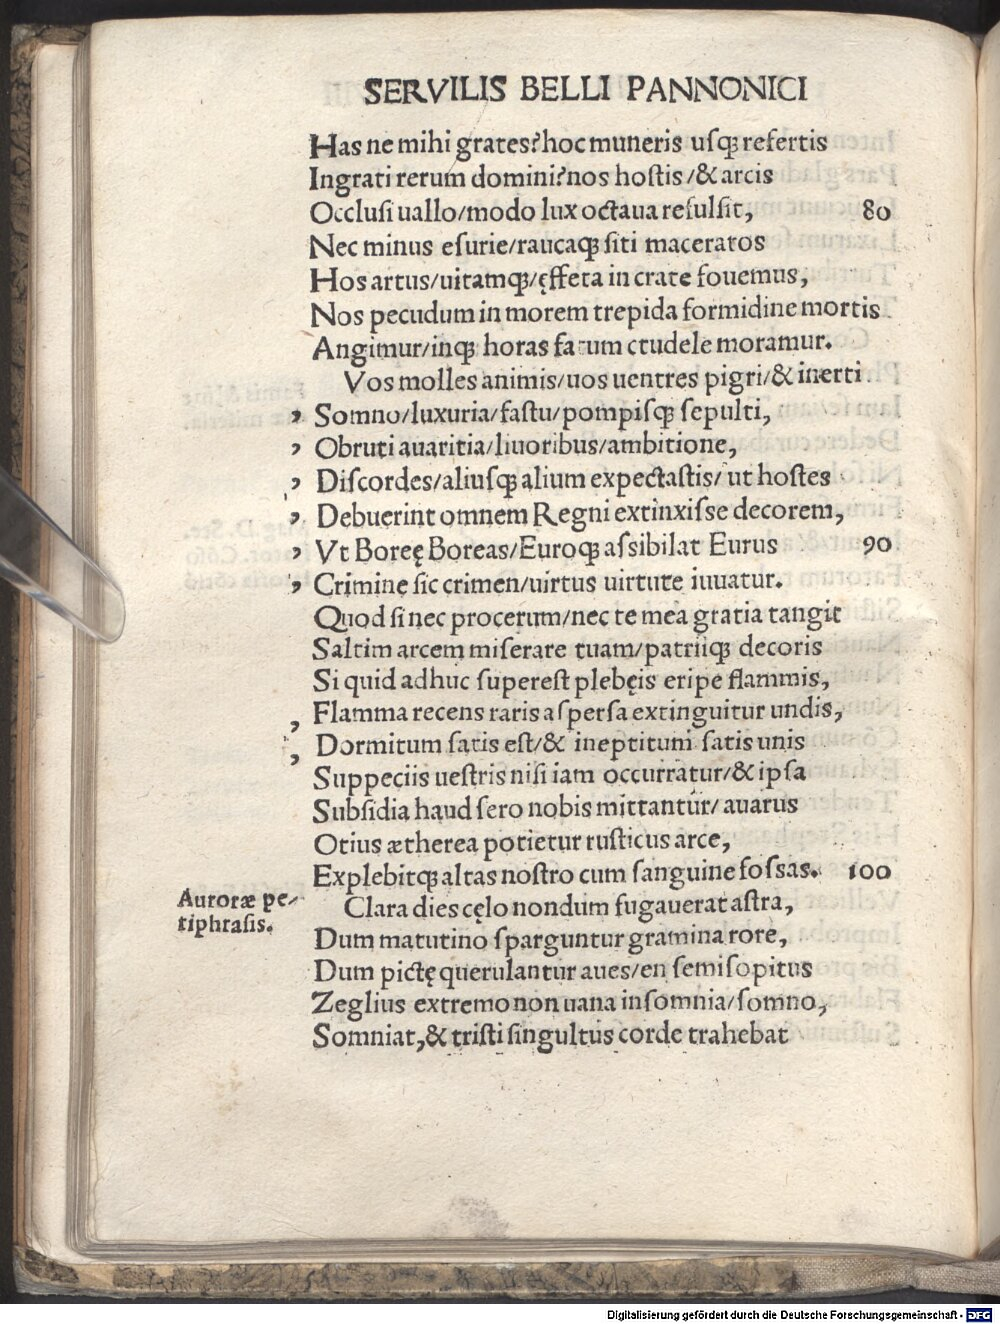 SERVILIS BELLI PANNONICI
Has ne mihi grates? hoc muneris uſqꝫ refertis
Ingrati rerum domini? nos hoſtis/& arcis
Occluſi uallo/modo lux octaua refulſit, 80
Nec minus eſurie/raucaqꝫ ſiti maceratos
Hos artus/uitamqꝫ/ęffeta in crate fouemus,
Nos pecudum in morem trepida formidine mortis
Angimur/inqꝫ horas fatum crudele moramur.
Vos molles animis/uos uentres pigri/& inerti
, Somno/luxuria/faſtu/pompiſqꝫ ſepulti,
, Obruti auaritia/liuoribus/ambitione,
, Diſcordes/aliuſqꝫ alium expectaſtis/ ut hoſtes
, Debuerint omnem Regni extinxiſse decorem,
, Vt Boreę Boreas/Euroqꝫ aſsibilat Eurus 90
, Crimine ſic crimen/uirtus uirtute iuuatur.
Quod ſi nec procerum/nec te mea gratia tangit
Saltim arcem miſerare tuam/patriiqꝫ decoris
Si quid adhuc ſupereſt plebęis eripe flammis,
, Flamma recens raris aſperſa extinguitur undis,
, Dormitum ſatis eſt/& ineptitum ſatis unis
Suppeciis ueſtris niſi iam occurratur/& ipſa
Subſidia haud ſero nobis mittantur/ auarus
Otius ætherea potietur ruſticus arce,
Explebitqꝫ altas noſtro cum ſanguine foſsas. 100
Auroræ pe/
riphraſis.
Clara dies cęlo nondum fugauerat aſtra,
Dum matutino ſparguntur gramina rore,
Dum pictę querulantur aues/en ſemiſopitus
Zeglius extremo non uana inſomnia/ſomno,
Somniat,& triſti ſingultus corde trahebat
Digitalisierung gefördert durch die Deutsche Forschungsgemeinschaft - DFG